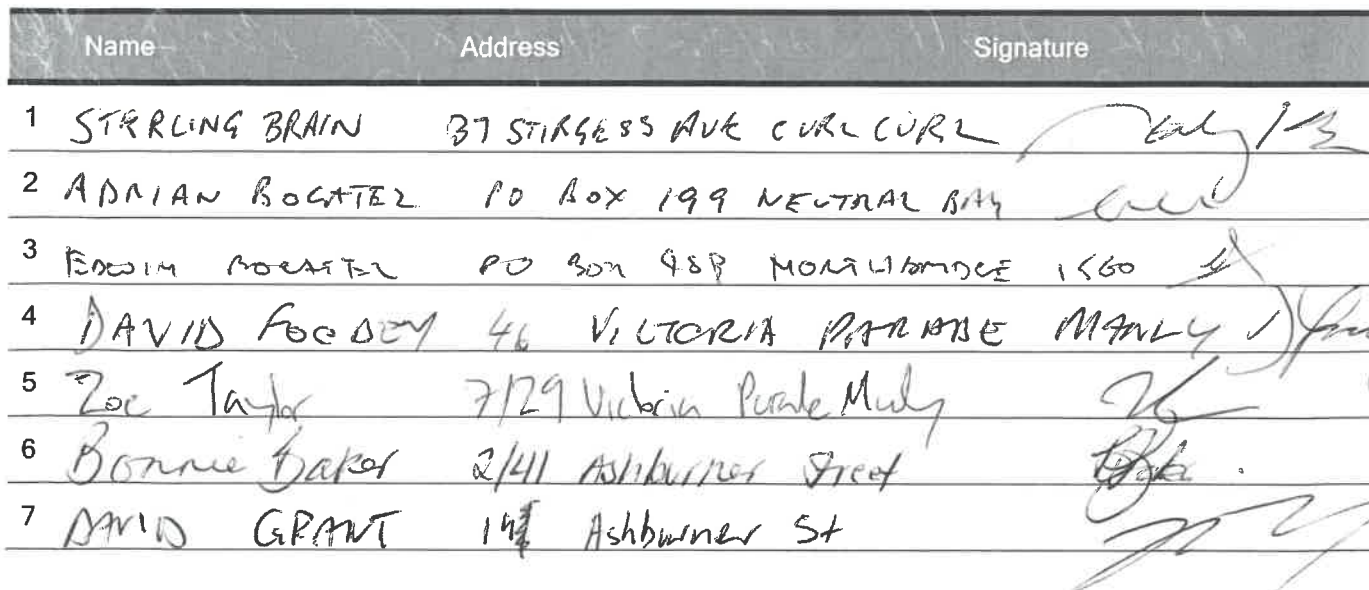 Name Address Signature
1 STERLING BRAIN 37 STIRGESS AVE CURL CURL
2 ADRIAN BOGATEZ PO BOX 199 NEUTRAL BAY
3 EDWIN PO BOX NORTHBRIDGE 1560
4 DAVID 46 VICTORIA PARADE MANLY
5 Zoe Taylor 7/29 Victoria Parade Manly
6 Bonnie Baker 2/41 Ashburner Street
7 DAVID GRANT Ashburner St